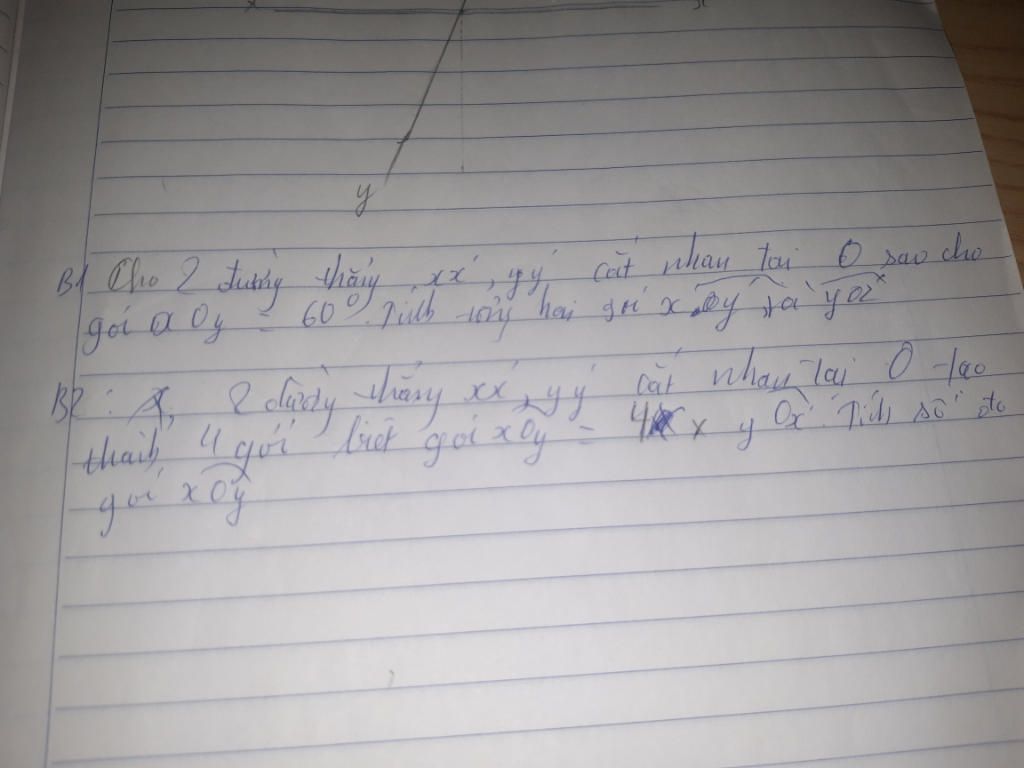 y
B1 Cho 2 đường thẳng xx', yy' cắt nhau tại O sao cho
góc xOy = 60°. Tính tổng hai góc x'Oy và yOx'
B2: 2 đường thẳng xx', yy' cắt nhau tại O tạo
thành 4 góc biết góc xOy = 4 x yOx'. Tính số đo
góc xOy